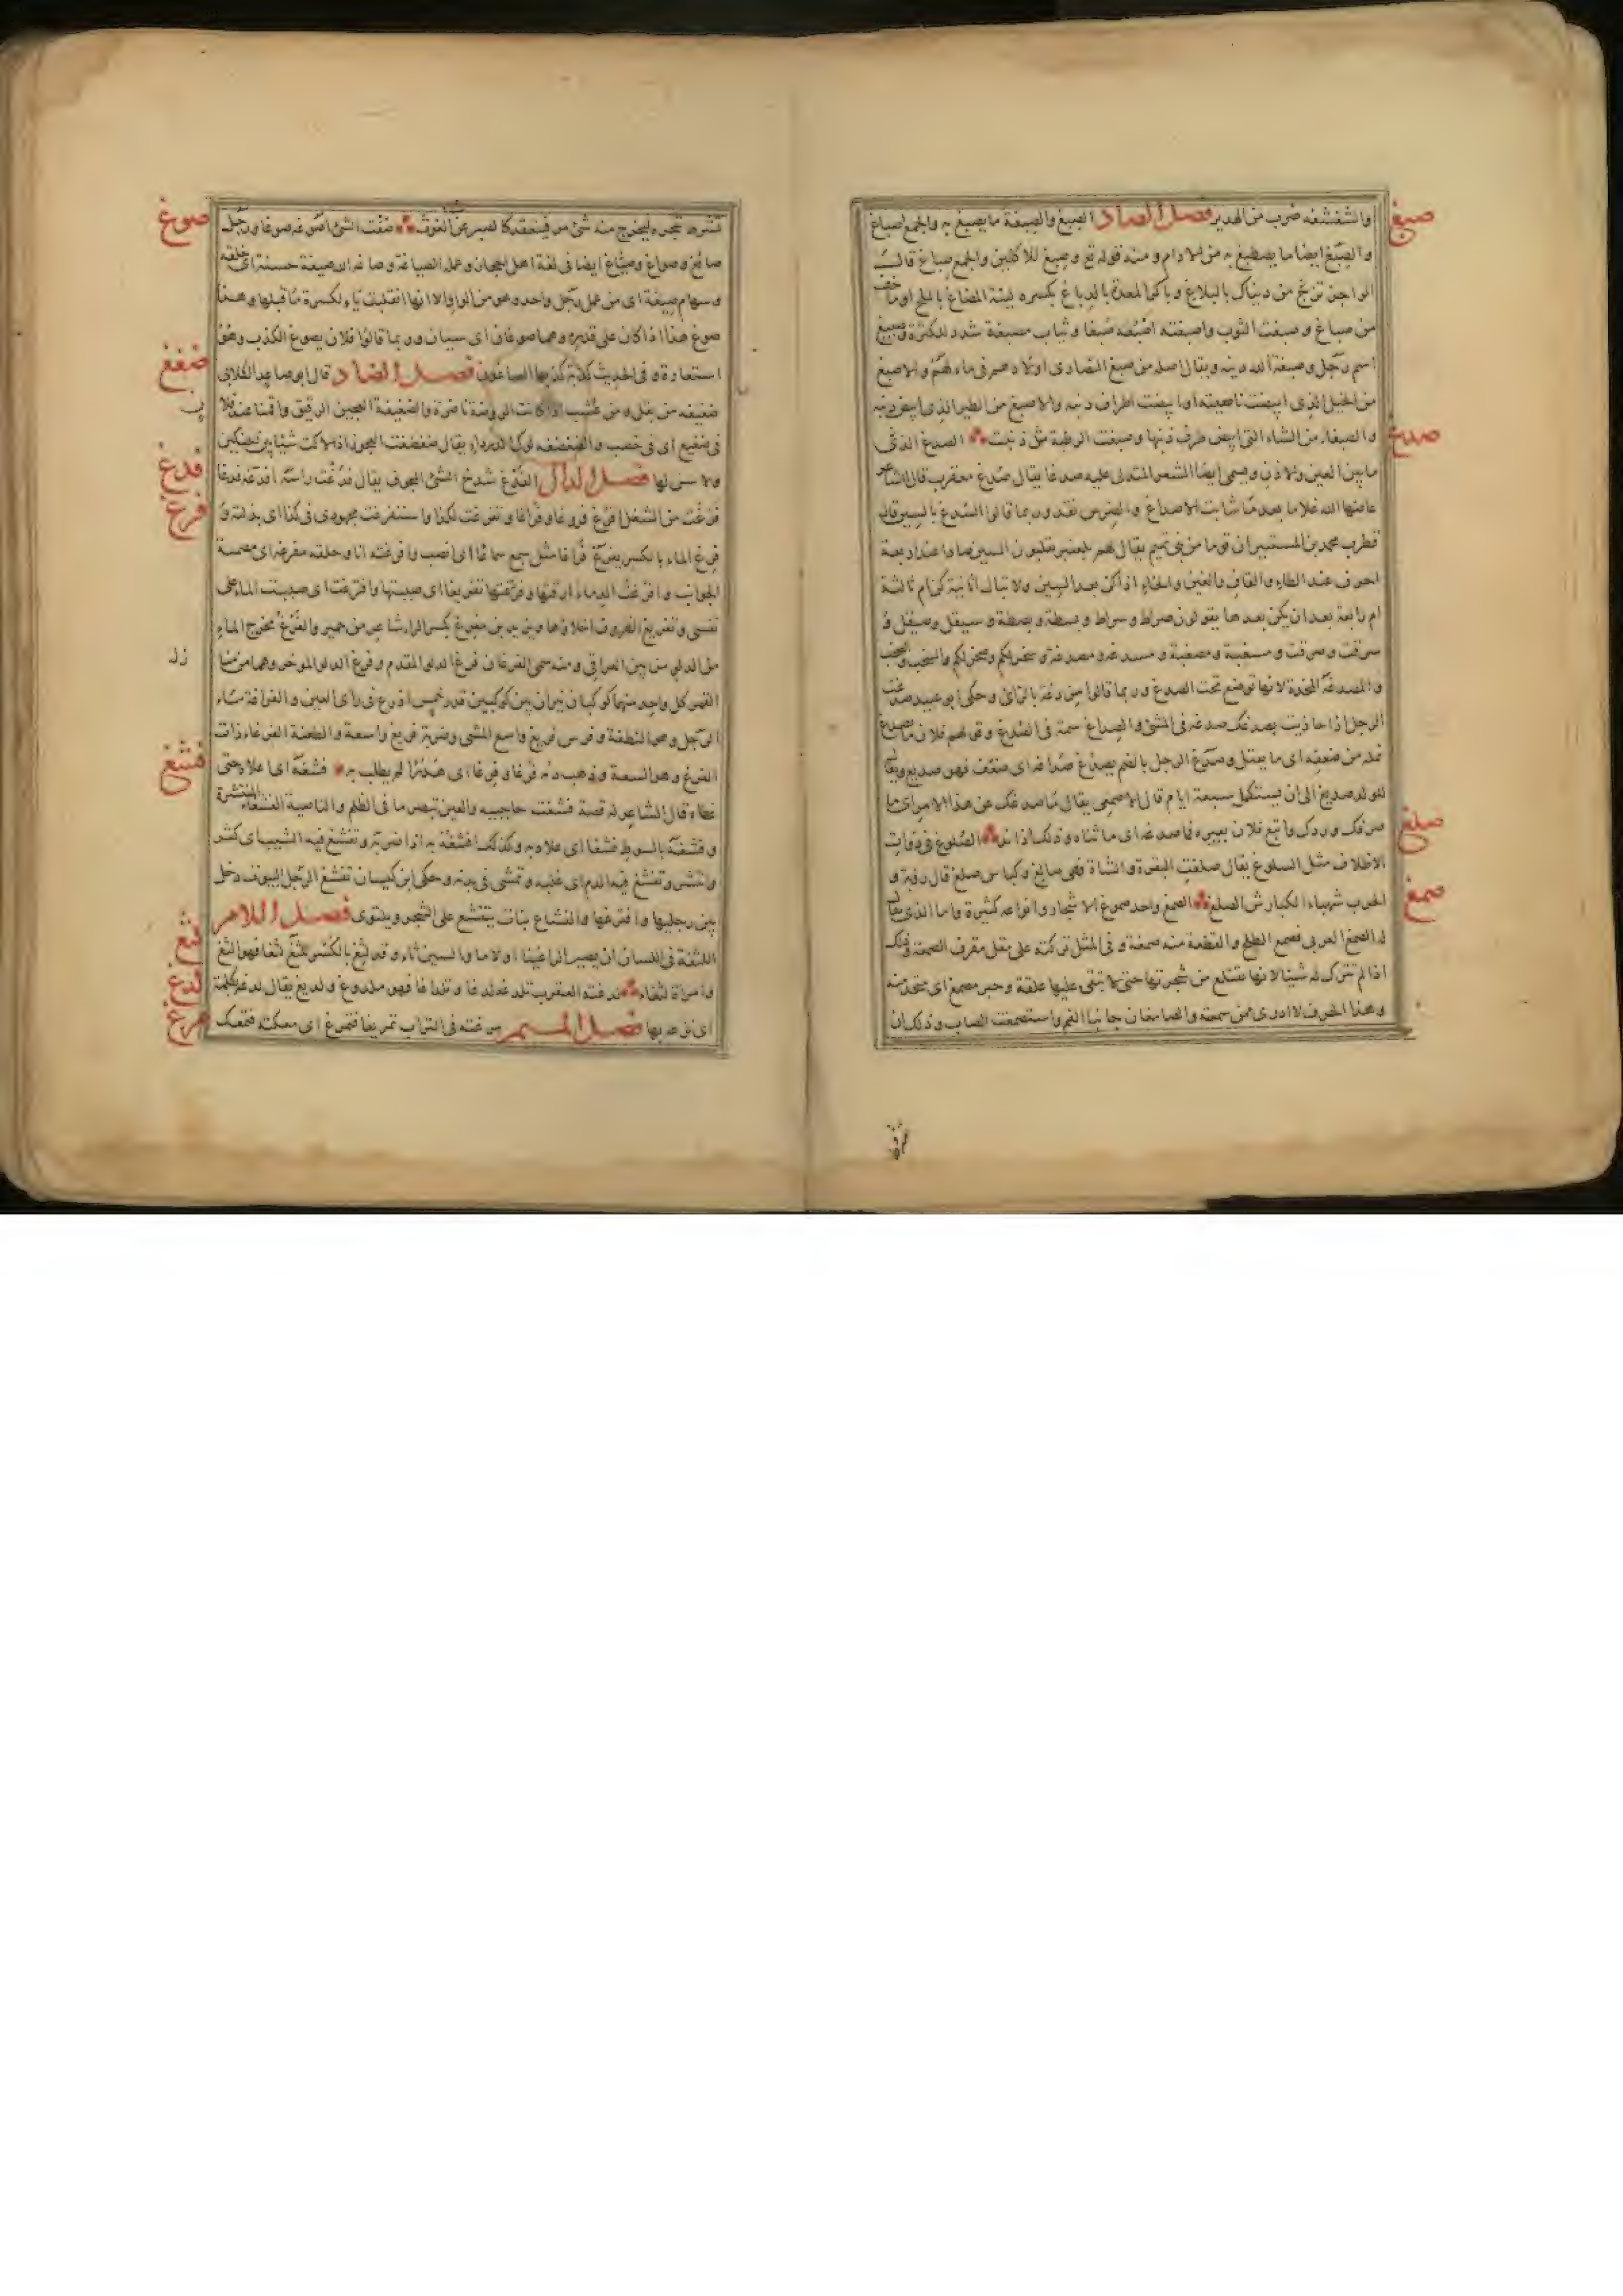 والشغشغه ضرب من الهدير فصل الصاد الصبغ والصبغة ما يصبغ به والجمع اصباغ
صبغ
والصبغ ايضا ما يصطبغ به من الادام ومنه قوله تع وصبغ للاكلين والجمع صباغ قال
الراجز تزج من دنياك بالبلاغ وباكر المعدة بالدباغ بكسرة لينة المضاغ بالملح او ما خف
من صباغ وصبغت الثوب واصبغته اصبغه صبغا وثياب مصبغة شدد للكثرة وصبيغ
اسم رجل وصبغة الله دينه ويقال اصله من صبغ النصارى اولادهم في ماء لهم والاصبغ
من الخيل الذى ابيضت ناصيته او ابيضت اطراف ذنبه والاصبغ من الطير الذى ابيض ذنبه
والصبغاء من الشاء التى ابيض طرف ذنبها وصبغت الرطبة مثل ذنبت الصدغ الذى
صدغ
ما بين العين والاذن ويسمى ايضا الشعر المتدلى عليه صدغا يقال صدغ معقرب قال الشاعر
عاضها الله غلاما بعد ما شابت الاصداغ والضرس نقد وربما قالوا السدغ بالسين قال
قطرب محمد بن المستنير ان قوما من بنى تميم يقال لهم بلعنبر يقلبون السين صادا عند اربعة
احرف عند الطاء والقاف والغين والخاء اذا كن بعد السين ولا تبالى اثانية كن ام ثالثة
ام رابعة بعد ان يكن بعدها يقولون صراط وسراط وبسطة وبصطة وسيقل وصيقل و
سرقت وصرقت ومسغبة ومصغبة ومسدغة ومصدغة وسخر لكم وصخر لكم والسخب والصخب
والمصدغة المخدة لانها توضع تحت الصدغ وربما قالوا مزدغة بالزاى وحكى ابو عبيد صدغت
الرجل اذا حاذيت بصدغك صدغه فى المشى والصداغ سمة فى الصدغ وقولهم فلان ما يصدغ
نملة من ضعفه اى ما يقتل وصدغ الرجل بالضم يصدغ صداغة اى ضعف فهو صديغ ويقال
للولد صديغ الى ان يستكمل سبعة ايام قال الاصمعى يقال ما صدغك عن هذا الامر اى ما
صرفك وردك واتبع فلان بعيره فما صدغه اى ما ثناه وذلك اذا ند الصلوغ فى ذوات
صلغ
الاظلاف مثل السلوغ يقال صلغت البقرة والشاة وهى صالغ وكباس صلغ قال رؤبة و
الحرب شهباء الكباش الصلغ الصمغ واحد صموغ الاشجار وانواعه كثيرة واما الذى يقال
صمغ
له الصمغ العربى فصمغ الطلح والقطعة منه صمغة وفى المثل تركته على مثل مقرف الصمغة وذلك
اذا لم تترك له شيئا لانها تقتلع من شجرتها حتى لا تبقى عليها علقة وحبر مصمغ اى متخذ منه
وهذا الحرف لا ادرى ممن سمعته والصامغان جانبا الفم واستصمغت الصاب وذلك ان
تشرط شجره ليخرج منه شئ مر فينعقد كالصبر عن الغوث صغت الشئ اصوغه صوغا ورجل
صوغ
صائغ وصواغ وصياغ ايضا فى لغة اهل الحجاز وعمله الصياغة وصاغه الله صيغة حسنة اى خلقه
وسهام صيغة اى من عمل رجل واحد وهو من الواو الا انها انقلبت ياء لكسرة ما قبلها وهذا
صوغ هذا اذا كان على قدره وهما صوغان اى سيان وربما قالوا فلان يصوغ الكذب وهو
استعارة وفى الحديث كذبة كذبها الصاغون فصل الضاد قال ابو صاعد الكلابى
ضغغ
ضغيغة من بقل ومن عشب اذا كانت الروضة ناضرة والضغيغة العجين الرقيق واقمنا عند فلان
فى ضغيغ اى فى خصب والضغضغة لوك الدرداء يقال ضغضغت العجوز اذا لاكت شيئا بين الحنكين
ولا سن لها فصل الدال الفدغ شدخ الشئ المجوف يقال فدغت راسه افدغه فدغا
فدغ
فرغت من الشغل افرغ فروغا وفراغا وتفرغت لكذا واستفرغت مجهودى فى كذا اى بذلته و
فرغ
فرغ الماء بالكسر يفرغ فراغا مثل سمع سماعا اى انصب وافرغته انا وحلقة مفرغة اى مصمتة
الجوانب وافرغت الدماء ارقتها وفرغتها تفريغا اى صببتها وافترغت اى صببت الماء على
نفسى وتفريغ الظروف اخلاؤها ويزيد بن مفرغ بكسر الراء شاعر من حمير والفرغ مخرج الماء
من الدلو من بين العراقى ومنه سمى الفرغان فرغ الدلو المقدم وفرغ الدلو المؤخر وهما من منازل
القمر كل واحد منهما كوكبان نيران بين كوكبين قدر خمس اذرع فى راى العين والفراغة ماء
الرجل وهو النطفة وفرس فريغ واسع المشى وضربة فريغ واسعة والطعنة الفرغاء ذات
الفرغ وهو السعة وذهب دمه فرغا وفرغا اى هدرا لم يطلب به فشغه اى علاه حتى
فشغ
غطاه قال الشاعر له قصة فشغت حاجبيه والعين تبصر ما فى الظلم والناصية الفشغاء المنتشرة
وفشغه بالسوط فشغا اى علاه به وكذلك افشغه به اذا ضربه وتفشغ فيه الشيب اى كثر
وانتشر وتفشغ فيه الدم اى غلبه وتمشى فى بدنه وحكى ابن كيسان تفشغ الرجل البيوت دخل
بين رجليها وافترعها والفشاغ نبات يتفشغ على الشجر ويلتوى فصل اللام
اللثغة فى اللسان ان يصير الراء غينا او لاما والسين ثاء وقد لثغ بالكسر يلثغ لثغا فهو الثغ
لثغ
وامراة لثغاء لدغته العقرب تلدغه لدغا وتلداغا فهو ملدوغ ولديغ يقال لدغه بكلمة
لدغ
اى نزعه بها فصل الميم مرغته فى التراب تمريغا فتمرغ اى معكته فتمعك
مرغ